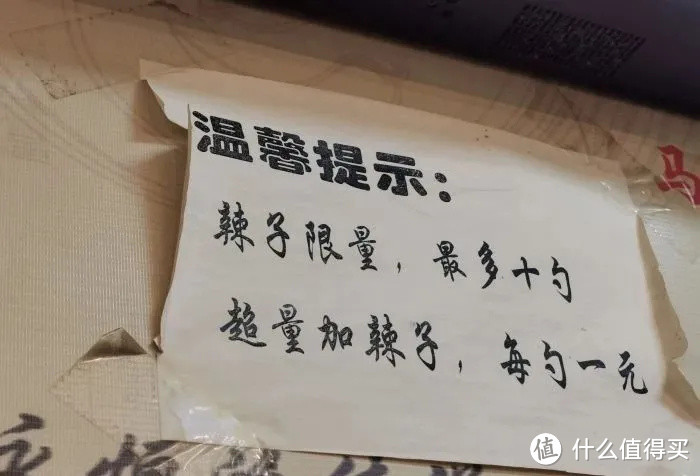 温馨提示：
辣子限量，最多十勺
超量加辣子，每勺一元
马
值 什么值得买